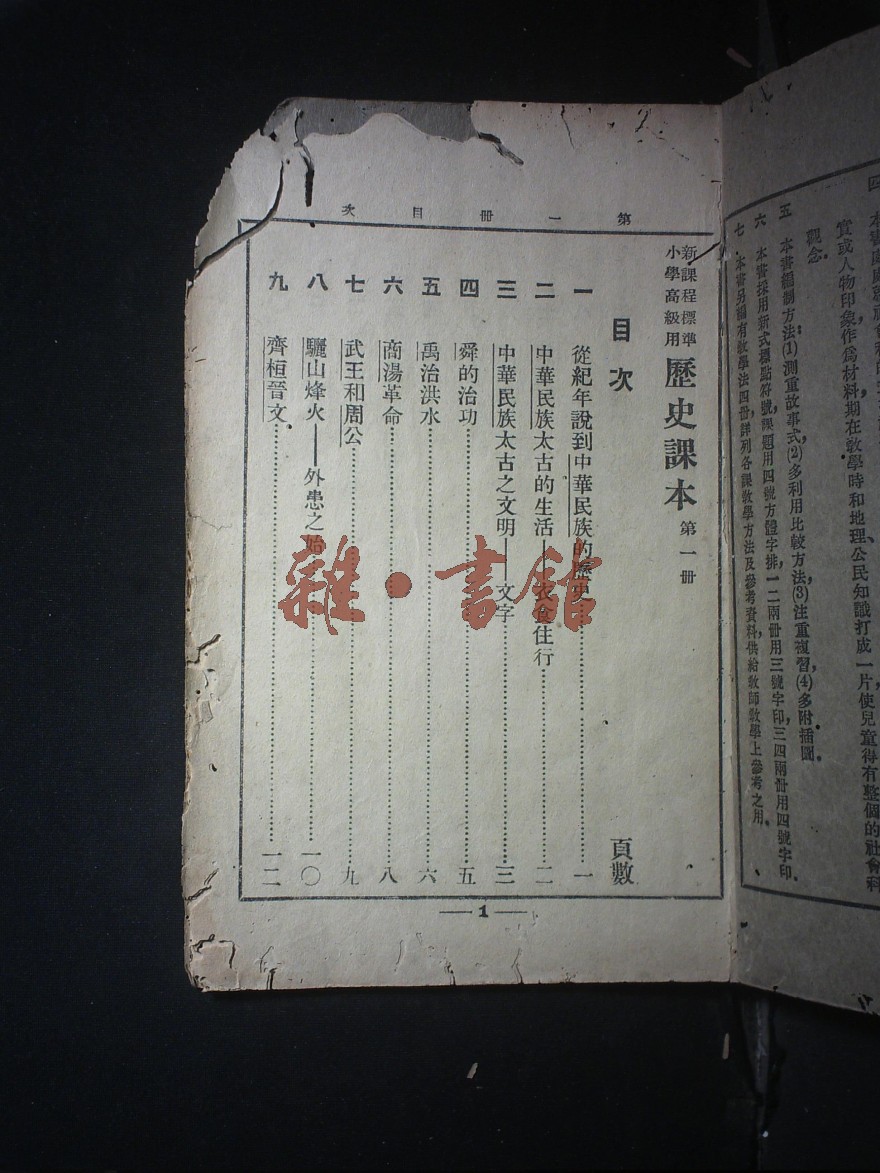 本書採用新式標點符號,課題用四號方體字排,一二兩册用三號字印,三四兩册用四號字印。
實或人物印象作爲材料,期在敎學時和地理、公民知識打成一片,使兒童得有整個的社會科
觀念。
五 本書編制方法:(1)測重故事式,(2)多利用比較方法,(3)注重複習,(4)多附插圖。
六
七 本書另編有敎學法四册,詳列各課敎學方法及參考資料,供給敎師敎學上參考之用。
第一册目次
新課程標準
小學高級用
歷史課本 第一册
目次 頁數
一 從紀年說到中華民族的歷史……一
二 中華民族太古的生活——衣食住行……二
三 中華民族太古之文明——文字……三
四 舜的治功……五
五 禹治洪水……六
六 商湯革命……八
七 武王和周公……九
八 驪山烽火——外患之始……一〇
九 齊桓晉文……一二
—1—
雜·書館